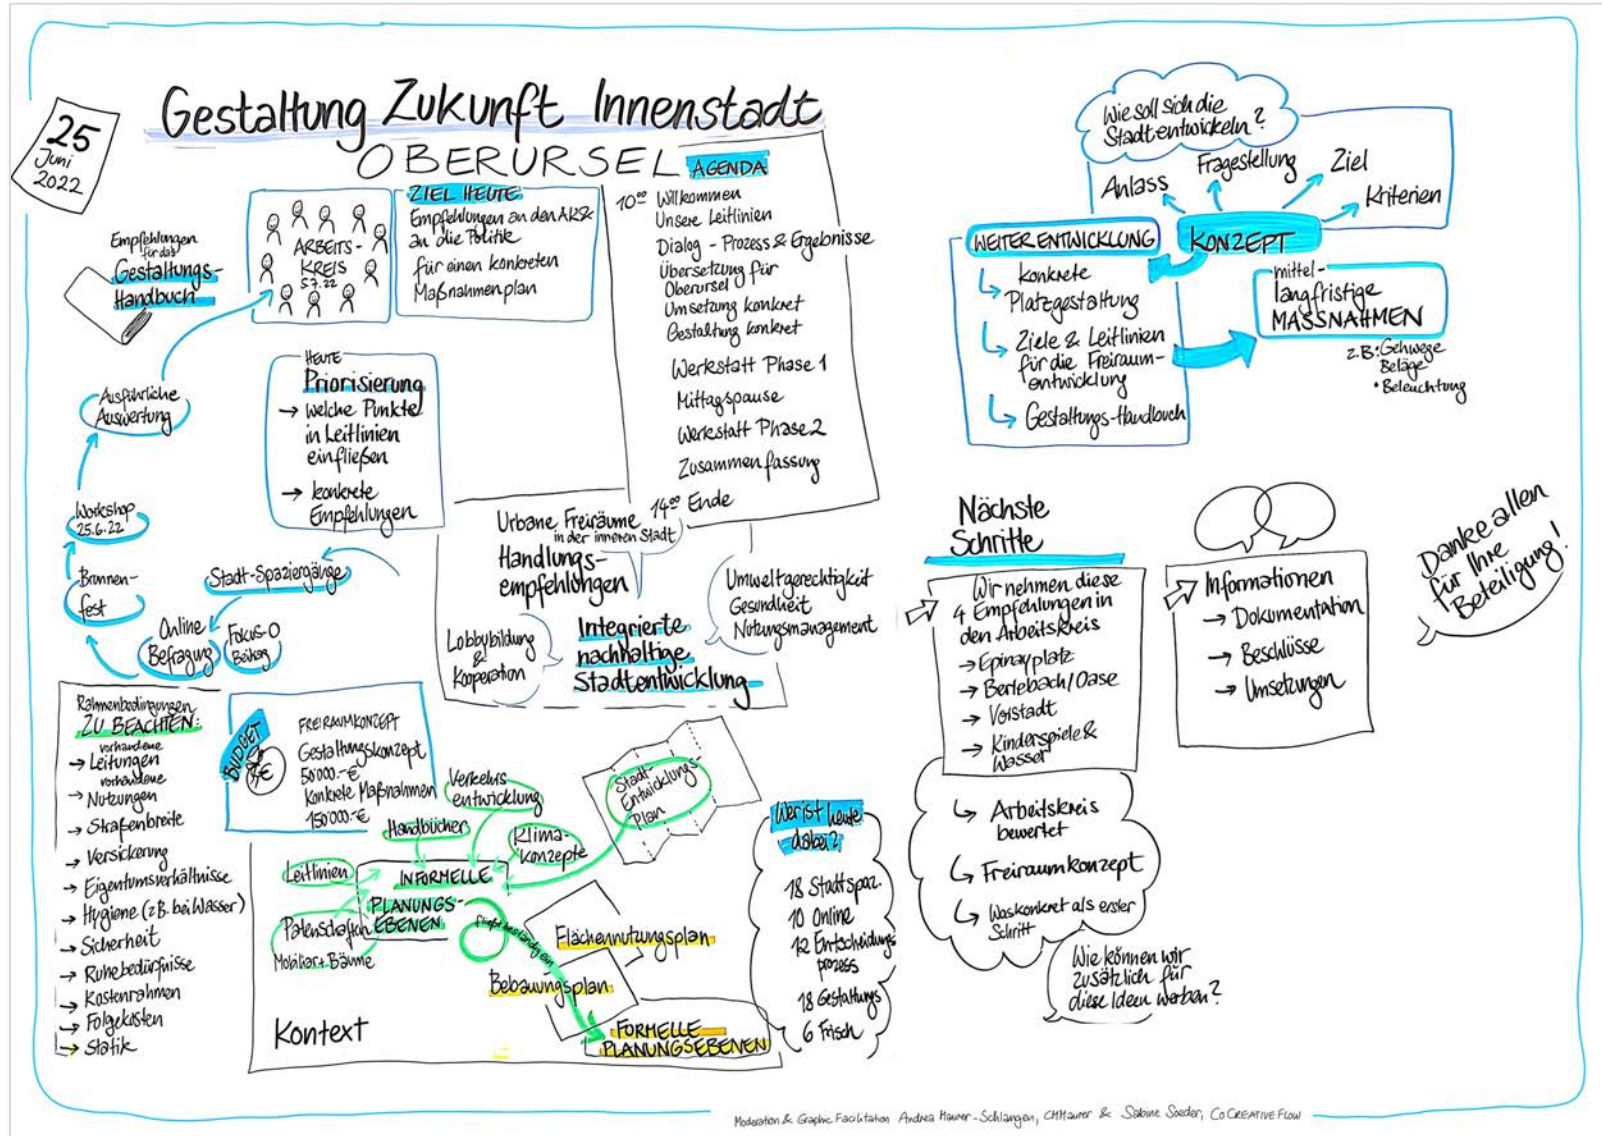 25
Juni
2022
Gestaltung Zukunft Innenstadt
OBERURSEL
Empfehlungen
für das
Gestaltungs-
Handbuch
ARBEITS-
KREIS
5.7.22
ZIEL HEUTE
Empfehlungen an den AKSk
an die Politik
für einen konkreten
Maßnahmenplan
AGENDA
10⁰⁰ Willkommen
Unsere Leitlinien
Dialog - Prozess & Ergebnisse
Übersetzung für
Oberursel
Umsetzung konkret
Gestaltung konkret
Werkstatt Phase 1
Mittagspause
Werkstatt Phase 2
Zusammenfassung
14⁰⁰ Ende
HEUTE
Priorisierung
→ welche Punkte
in Leitlinien
einfließen
→ konkrete
Empfehlungen
Ausführliche
Auswertung
Workshop
25.6.22
Brunnen-
fest
Stadt-Spaziergänge
Online
Befragung
Fokus-O
Beitrag
Urbane Freiräume
in der inneren Stadt
Handlungs-
empfehlungen
Lobbybildung
&
Kooperation
Umweltgerechtigkeit
Gesundheit
Nutzungsmanagement
Integrierte
nachhaltige
Stadtentwicklung
Rahmenbedingungen
ZU BEACHTEN:
vorhandene
→ Leitungen
vorhandene
→ Nutzungen
→ Straßenbreite
→ Versickerung
→ Eigentumsverhältnisse
→ Hygiene (z.B. bei Wasser)
→ Sicherheit
→ Ruhebedürfnisse
→ Kostenrahmen
→ Folgekosten
→ Statik
BUDGET
€
FREIRAUMKONZEPT
Gestaltungskonzept
50000.-€
Konkrete Maßnahmen
150'000.-€
Verkehrs
entwicklung
Handbücher
Klima-
Konzepte
Leitlinien
Patenschaften
Mobiliar + Bäume
INFORMELLE
PLANUNGS-
EBENEN
Stadt-
Entwicklungs-
Plan
fließt beständig ein
Flächennutzungsplan
Bebauungsplan
FORMELLE
PLANUNGSEBENEN
Kontext
Wer ist heute
dabei?
18 Stadtspaz.
10 Online
12 Entscheidungs
prozess
18 Gestaltungs
6 Frisch
Wie soll sich die
Stadt entwickeln?
Anlass
Fragestellung
Ziel
Kriterien
KONZEPT
WEITERENTWICKLUNG
konkrete
Platzgestaltung
Ziele & Leitlinien
für die Freiraum-
entwicklung
Gestaltungs-Handbuch
mittel-
langfristige
MASSNAHMEN
z.B. • Gehwege
Beläge
• Beleuchtung
Nächste
Schritte
Wir nehmen diese
4 Empfehlungen in
den Arbeitskreis
→ Epinayplatz
→ Berlebach/Oase
→ Vorstadt
→ Kinderspiele &
Wasser
Arbeitskreis
bewertet
Freiraumkonzept
Was konkret als erster
Schritt
Wie können wir
zusätzlich für
diese Ideen werben?
Informationen
→ Dokumentation
→ Beschlüsse
→ Umsetzungen
Danke allen
für Ihre
Beteiligung!
Moderation & Graphic Facilitation Andrea Maurer-Schlangen, CMMaurer & Sabine Soeder, CoCreativeFlow